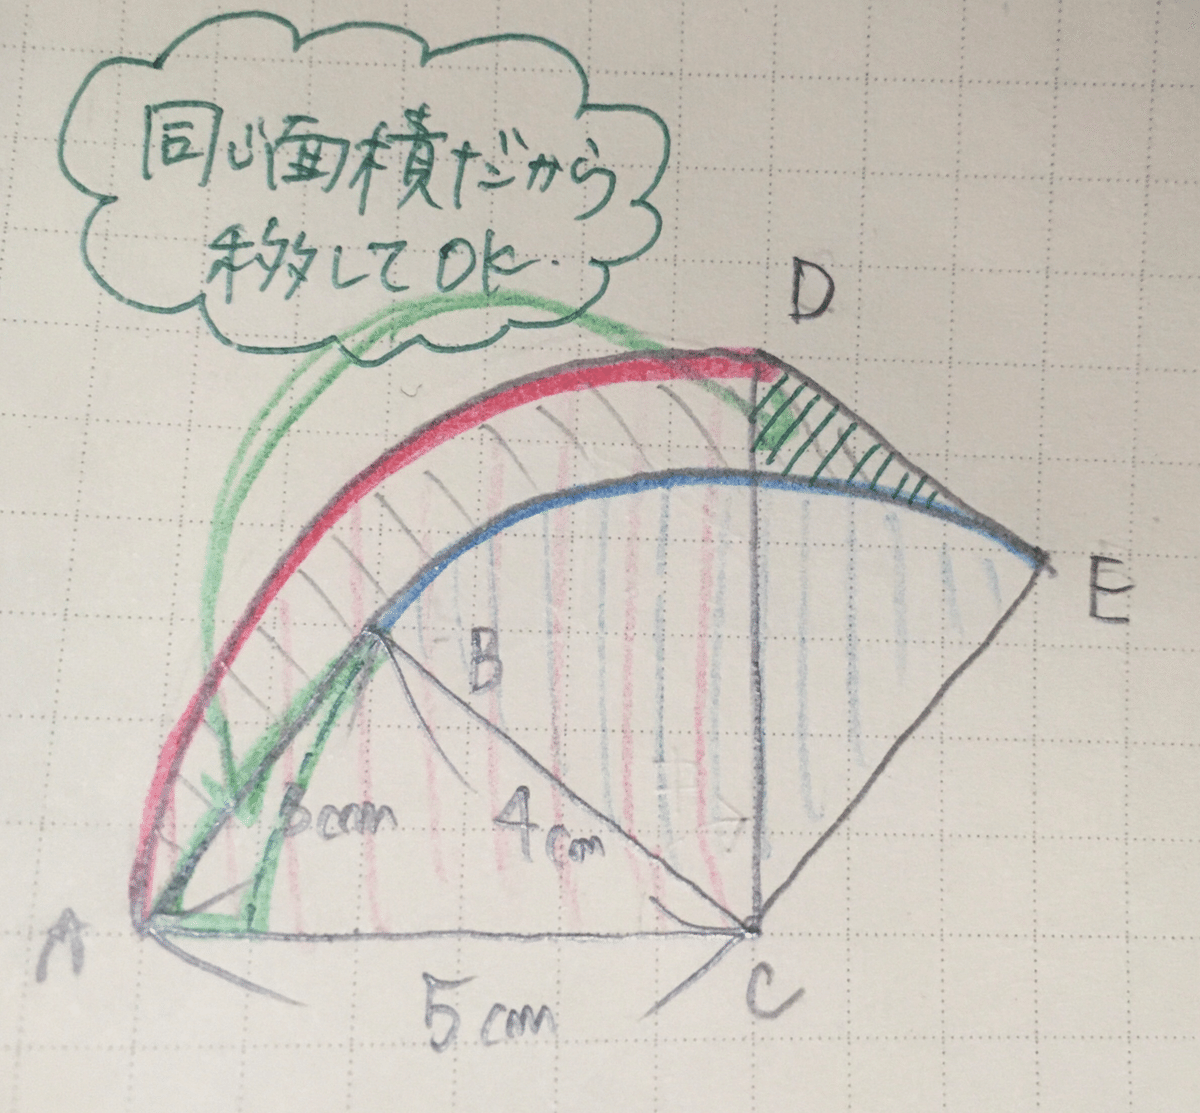 同じ面積だから
移してOK.
D
E
B
3cm
4cm
A
C
5cm